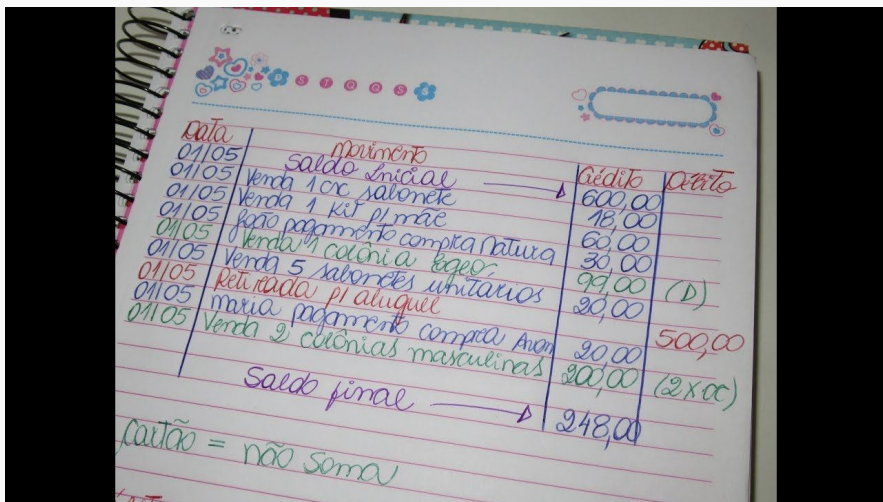 D S T Q Q S S
Data Movimento Crédito Débito
01/05 Saldo Inicial 600,00
01/05 Venda 1 cx sabonete 18,00
01/05 Venda 1 Kit p/ mãe 60,00
01/05 João pagamento compra Natura 30,00
01/05 Venda 1 colônia Egeo 99,00 (D)
01/05 Venda 5 sabonetes unitarios 20,00
01/05 Retirada p/ aluguel 500,00
01/05 maria pagamento compra Avon 20,00
01/05 Venda 2 colônias masculinas 200,00 (2xcc)
Saldo final 248,00
Cartão = não soma